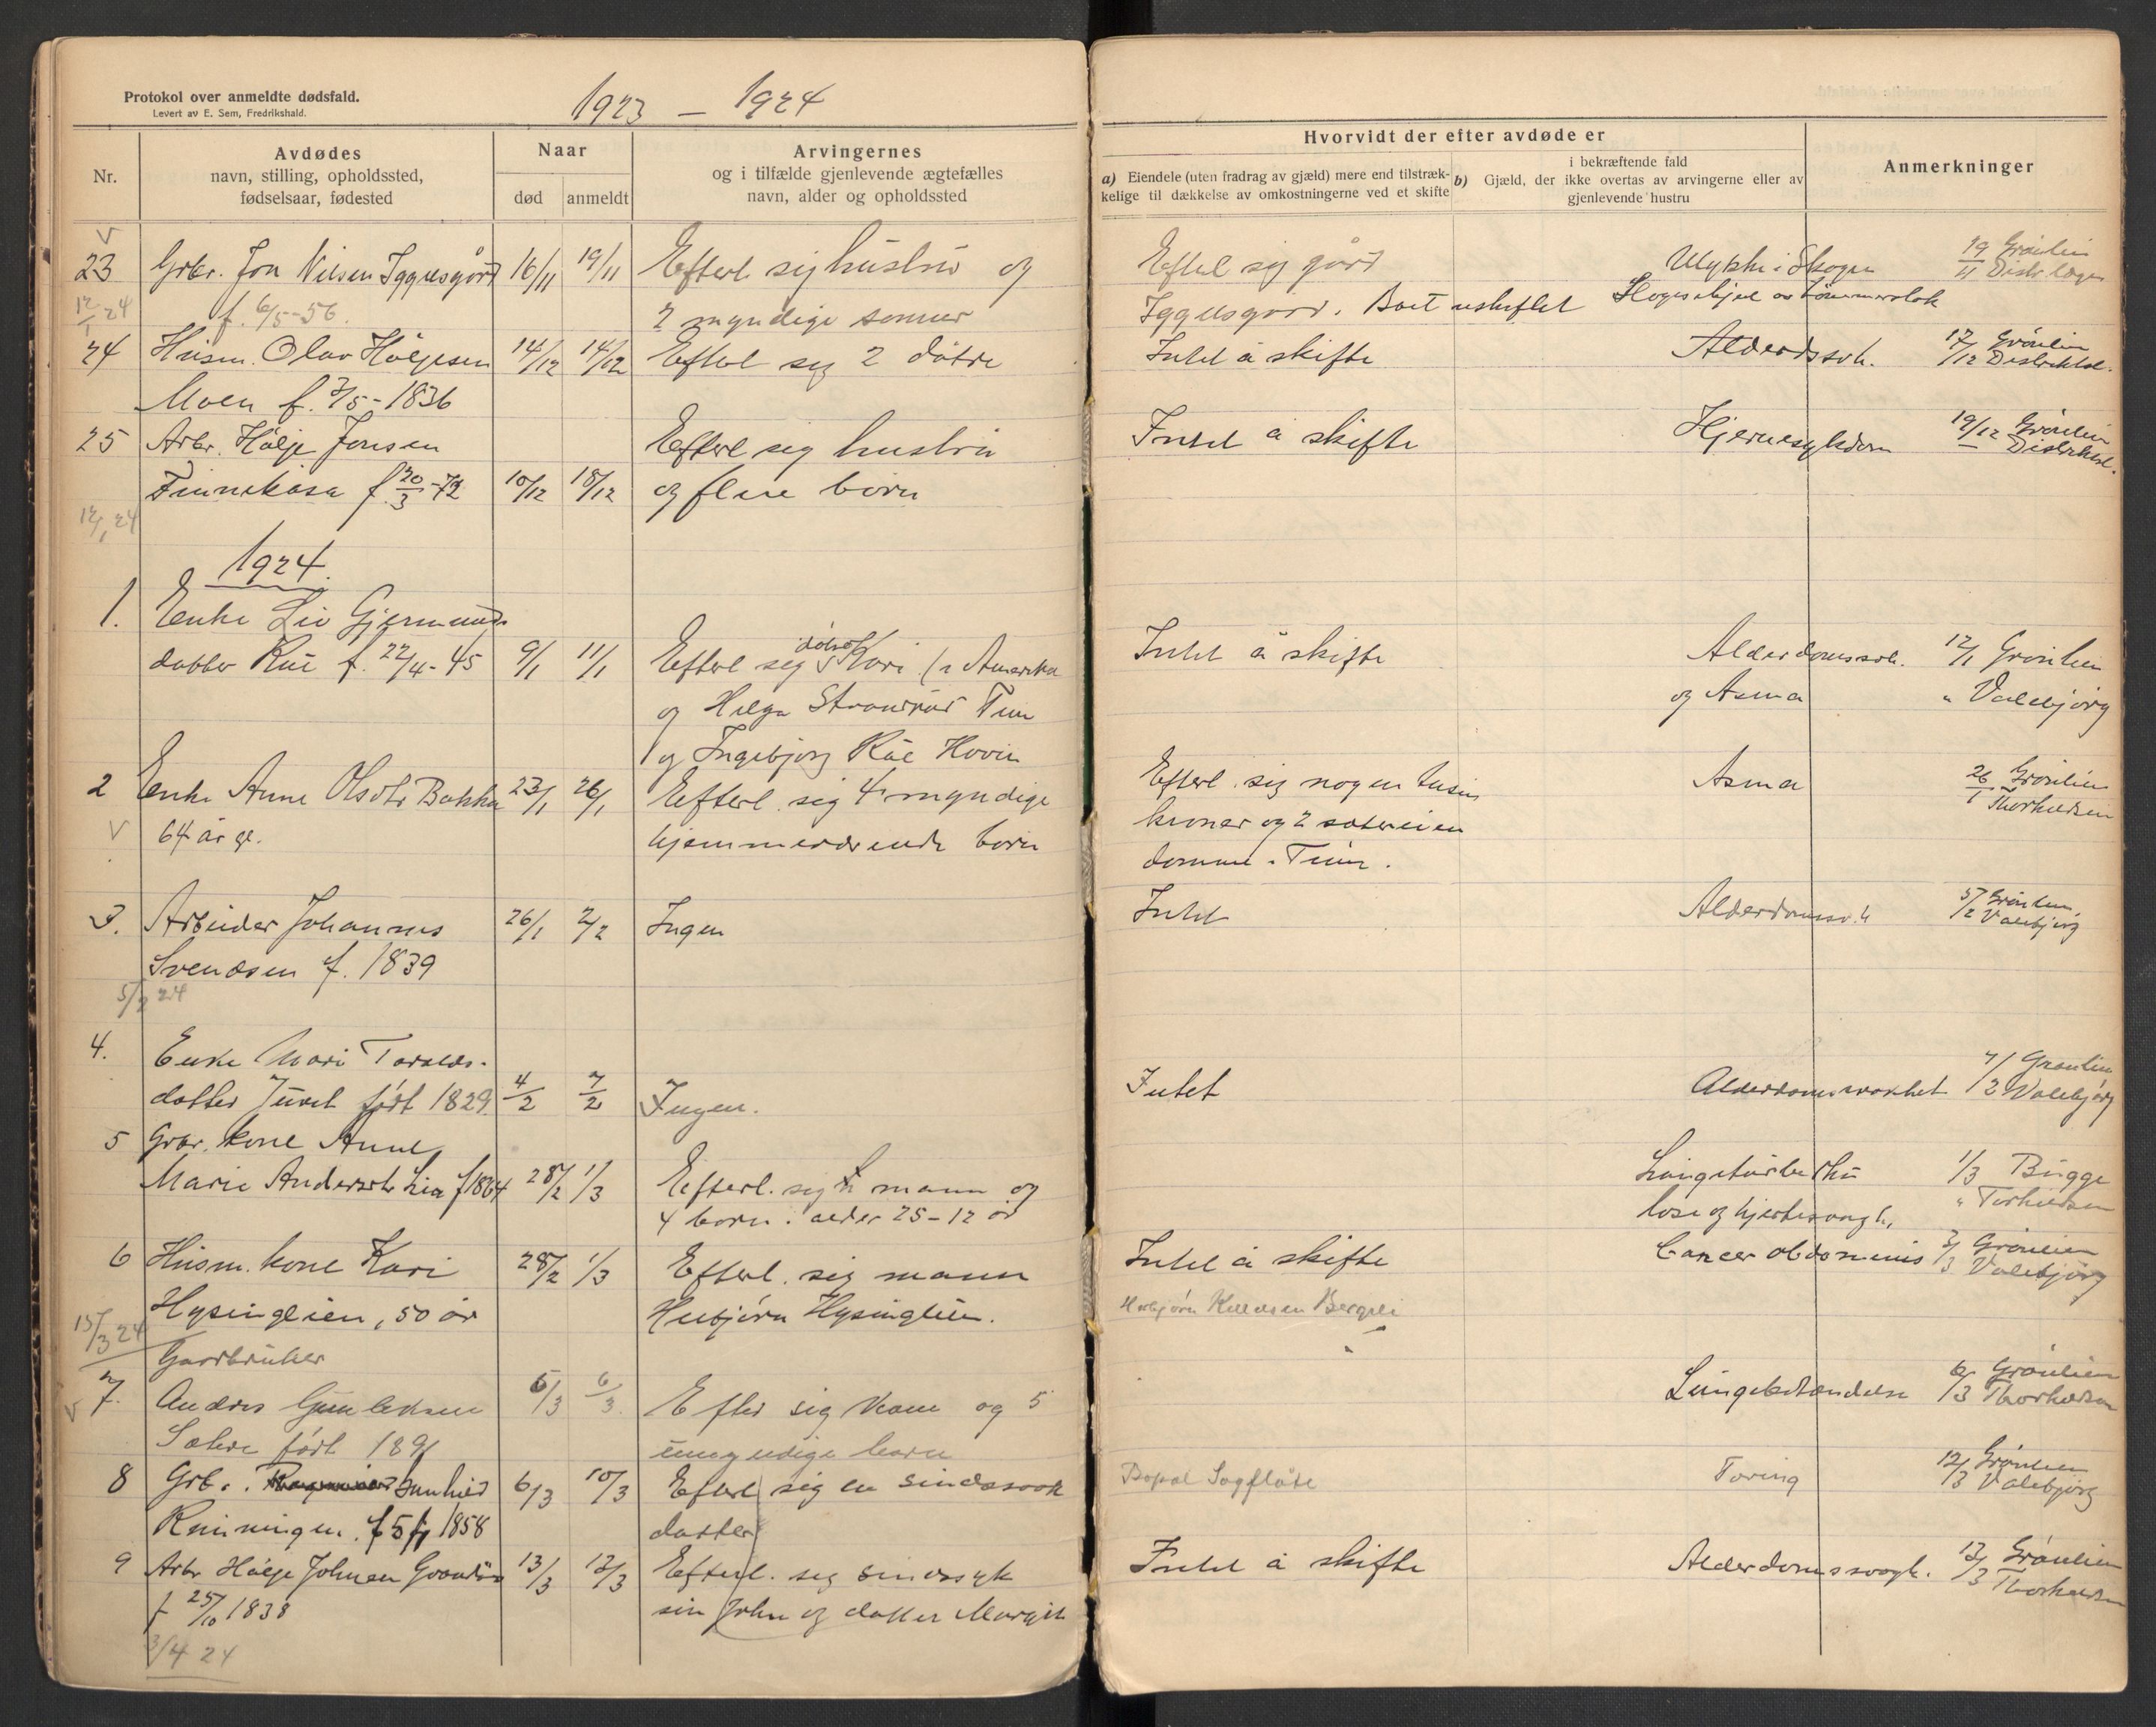 Protokol over anmeldte dødsfald.
Levert av E. Sem, Fredrikshald.
1923 – 1924
Nr.
Avdødes
navn, stilling, opholdssted,
fødselsaar, fødested
Naar
død
anmeldt
Arvingernes
og i tilfælde gjenlevende ægtefælles
navn, alder og opholdssted
Hvorvidt der efter avdøde er
a) Eiendele (uten fradrag av gjæld) mere end tilstræk-
kelige til dækkelse av omkostningerne ved et skifte
i bekræftende fald
b) Gjæld, der ikke overtas av arvingerne eller av
gjenlevende hustru
Anmerkninger
23 Grbr. Jon Nilsen Iggesgård 16/11 19/11 Efterl sig hustru og Efterl sig gård Ulykke i Skogen 19/11 Grönlien
12/1 24 f. 6/5-56. 2 myndige sønner Iggesgård. Boet uskiftet Distr.læge
24 Husm. Olav Hölgesen 14/12 14/12 Efterl sig 2 døtre Intet å skifte Alderdssvk. 17/12 Grönlien
Moen f. 7/5-1836 Distriktsl.
25 Arbr. Hölje Jonsen Efterl sig hustru Intet å skifte Hjernesykdom 19/12 Grönlien
Finnekåsa f. 20/3-72 10/12 18/12 og flere börn Distriktsl.
12/1 24
1924.
1. Enke Liv Gjermunds
datter Rue f. 22/4-45 9/1 11/1 Efterl sig døtre Kari (i Amerika Intet å skifte Alderdomssvk. 12/1 Grönlien
og Helga Strandrud Tinn og Asma " Valebjörg
og Ingebjörg Rue Hovin
2 Enke Anne Olsdtr Bakka 23/1 26/1 Efterl. sig 4 myndige Efterl. sig nogen tusin Asma 26/1 Grönlien
64 år gl. hjemmeværende börn kroner og 2 sætereien Thorkildsen
domme i Tinn.
3. Arbeider Johannes 26/1 2/2 Ingen Intet Alderdomssv.h 5/2 Grönlien
Svendsen f. 1839 Valebjörg
5/2 24
4. Enke Mari Taralds-
datter Juvet född 1829 4/2 7/2 Ingen. Intet Alderdomssvakhet 7/2 Grönlien
Valebjörg
5 Grbr. kone Anne
Marie Andersdtr Lia f 1864 28/2 1/3 Efterl. sig mann og Lungetuberku 1/3 Bugge
4 börn i alder 25-12 år lose og hjertesvagh. " Torkildsen
6 Husm. kone Kari 28/2 1/3 Efterl. sig mann Intet å skifte Cancer abdominis 3/3 Grönlien
Hysinglien, 50 år Herbjörn Hysinglien. Herbjörn Bergli Valebjörg
15/3 24
Gaardbruker
7. Anders Gunleksen 5/3 6/3 Efter sig kone og 5 Lungebetændelse 6/3 Grönlien
født 1891 umyndige barn Thorkildsen
8 Grb. Gunhild 6/3 10/3 Efterl sig en sindssvak Bopal Sagflåte Tæring 12/3 Grönlien
f 5/1 1858 datter Valebjörg
9 Arbr Hölje Johnsen 13/3 13/3 Efterl. sig sindssyk Intet å skifte Alderdomssvagh. 13/3 Grönlien
f 25/10 1838 sön John og datter Margit Thorkildsen
3/4 24